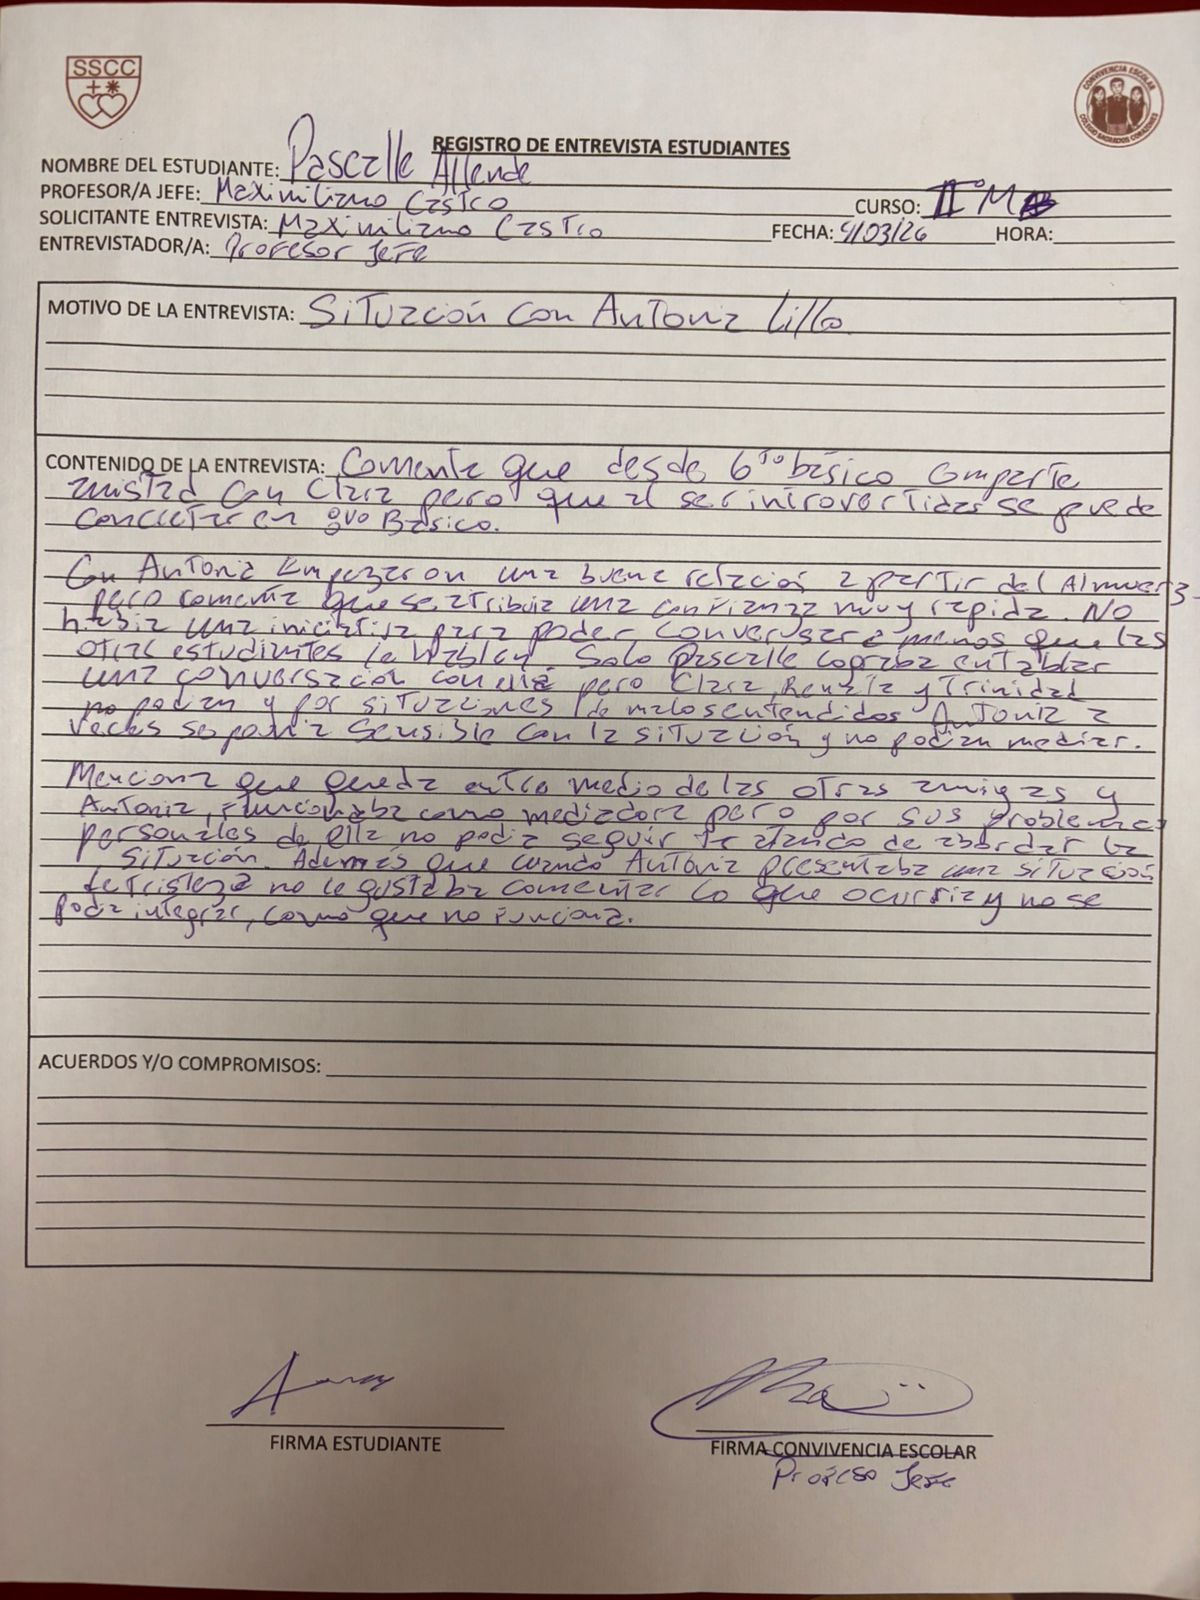 SSCC
CONVIVENCIA ESCOLAR
COLEGIO SAGRADOS CORAZONES
REGISTRO DE ENTREVISTA ESTUDIANTES
NOMBRE DEL ESTUDIANTE: Pascalle Allende
PROFESOR/A JEFE: Maximiliano Castro
CURSO: II°M
SOLICITANTE ENTREVISTA: Maximiliano Castro
FECHA: 4/03/26 HORA:
ENTREVISTADOR/A: Profesor Jefe
MOTIVO DE LA ENTREVISTA: Situación con Antonia Lillo
CONTENIDO DE LA ENTREVISTA: Comenta que desde 6to básico comparte
amistad con Clara pero que al ser introvertidas se puede
concretar en 8vo Básico.
Con Antonia Empezaron una buena relación a partir del Almuerzo
pero comenta que se atribuia una confianza muy rapida. No
habia una iniciativa para poder conversar a menos que las
otras estudiantes le hablen. Solo Pascalle lograba entablar
una conversación con ella pero Clara, Renata y Trinidad
no podian y por situaciones de malos entendidos Antonia a
veces se ponia sensible con la situación y no podian mediar.
Menciona que queda entre medio de las otras amigas y
Antonia, funcionaba como mediadora pero por sus problemas
personales de ella no podia seguir tratando de abordar la
situación. Además que cuando Antonia presentaba una situación
de tristeza no le gustaba comentar lo que ocurria y no se
podia integrar, como que no funciona.
ACUERDOS Y/O COMPROMISOS:
FIRMA ESTUDIANTE
FIRMA CONVIVENCIA ESCOLAR
Profeso Jefe